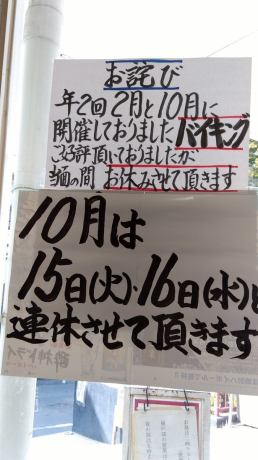 お詫び
年2回 2月と10月に
開催しておりましたバイキング
ご好評頂いておりましたが
当面の間 お休みさせて頂きます
10月は
15日(火)・16日(水)
連休させて頂きます